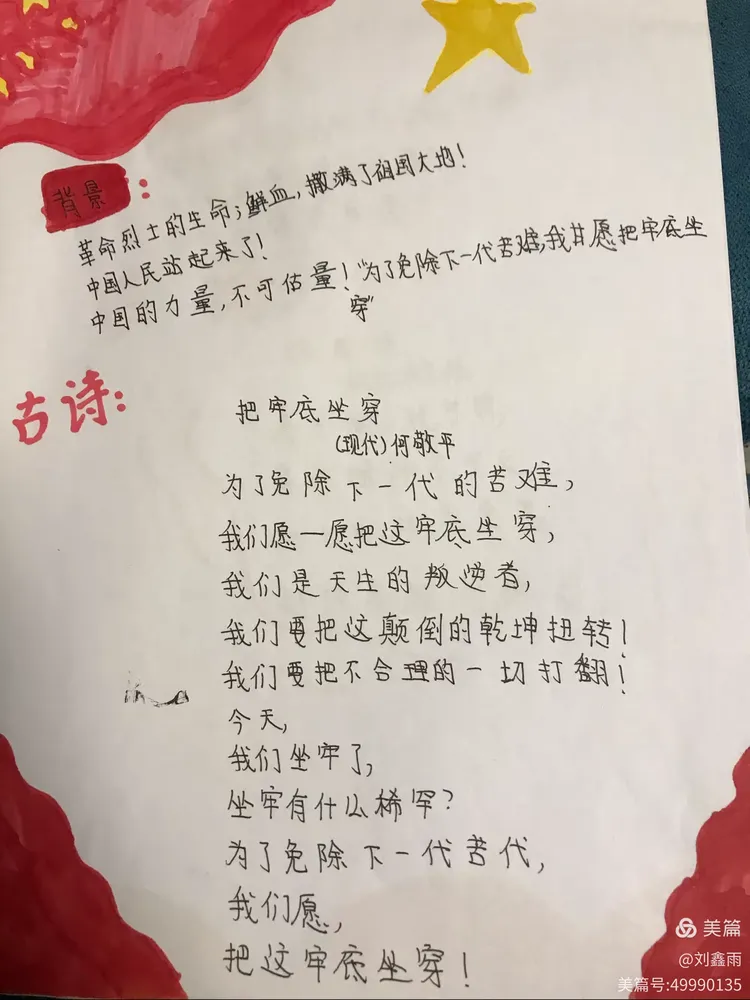 背景：
革命烈士的生命；鲜血，撒满了祖国大地！
中国人民站起来了！
中国的力量，不可估量！“为了免除下一代苦难，我甘愿把牢底坐
穿”
古诗：
把牢底坐穿
（现代）何敬平
为了免除下一代的苦难，
我们愿一愿把这牢底坐穿，
我们是天生的叛逆者，
我们要把这颠倒的乾坤扭转！
我们要把不合理的一切打翻！
今天，
我们坐牢了，
坐牢有什么稀罕？
为了免除下一代苦代，
我们愿，
把这牢底坐穿！
美篇
@刘鑫雨
美篇号:49990135